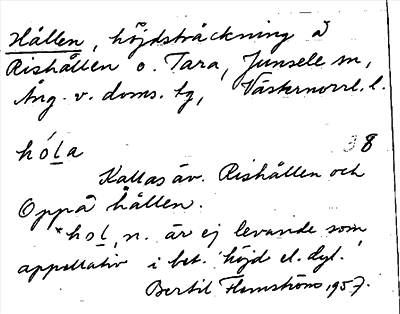 Hållen, höjdsträckning å
Rishållen o. Tara, Junsele sn,
Ång. v. doms. tg, Västernorrl. l.
hó̱la 38
Kallas äv. Rishållen och
Oppå hållen.
*hol, n. är ej levande som
appellativ i bet. höjd el. dyl.
Bertil Flemström, 1957.